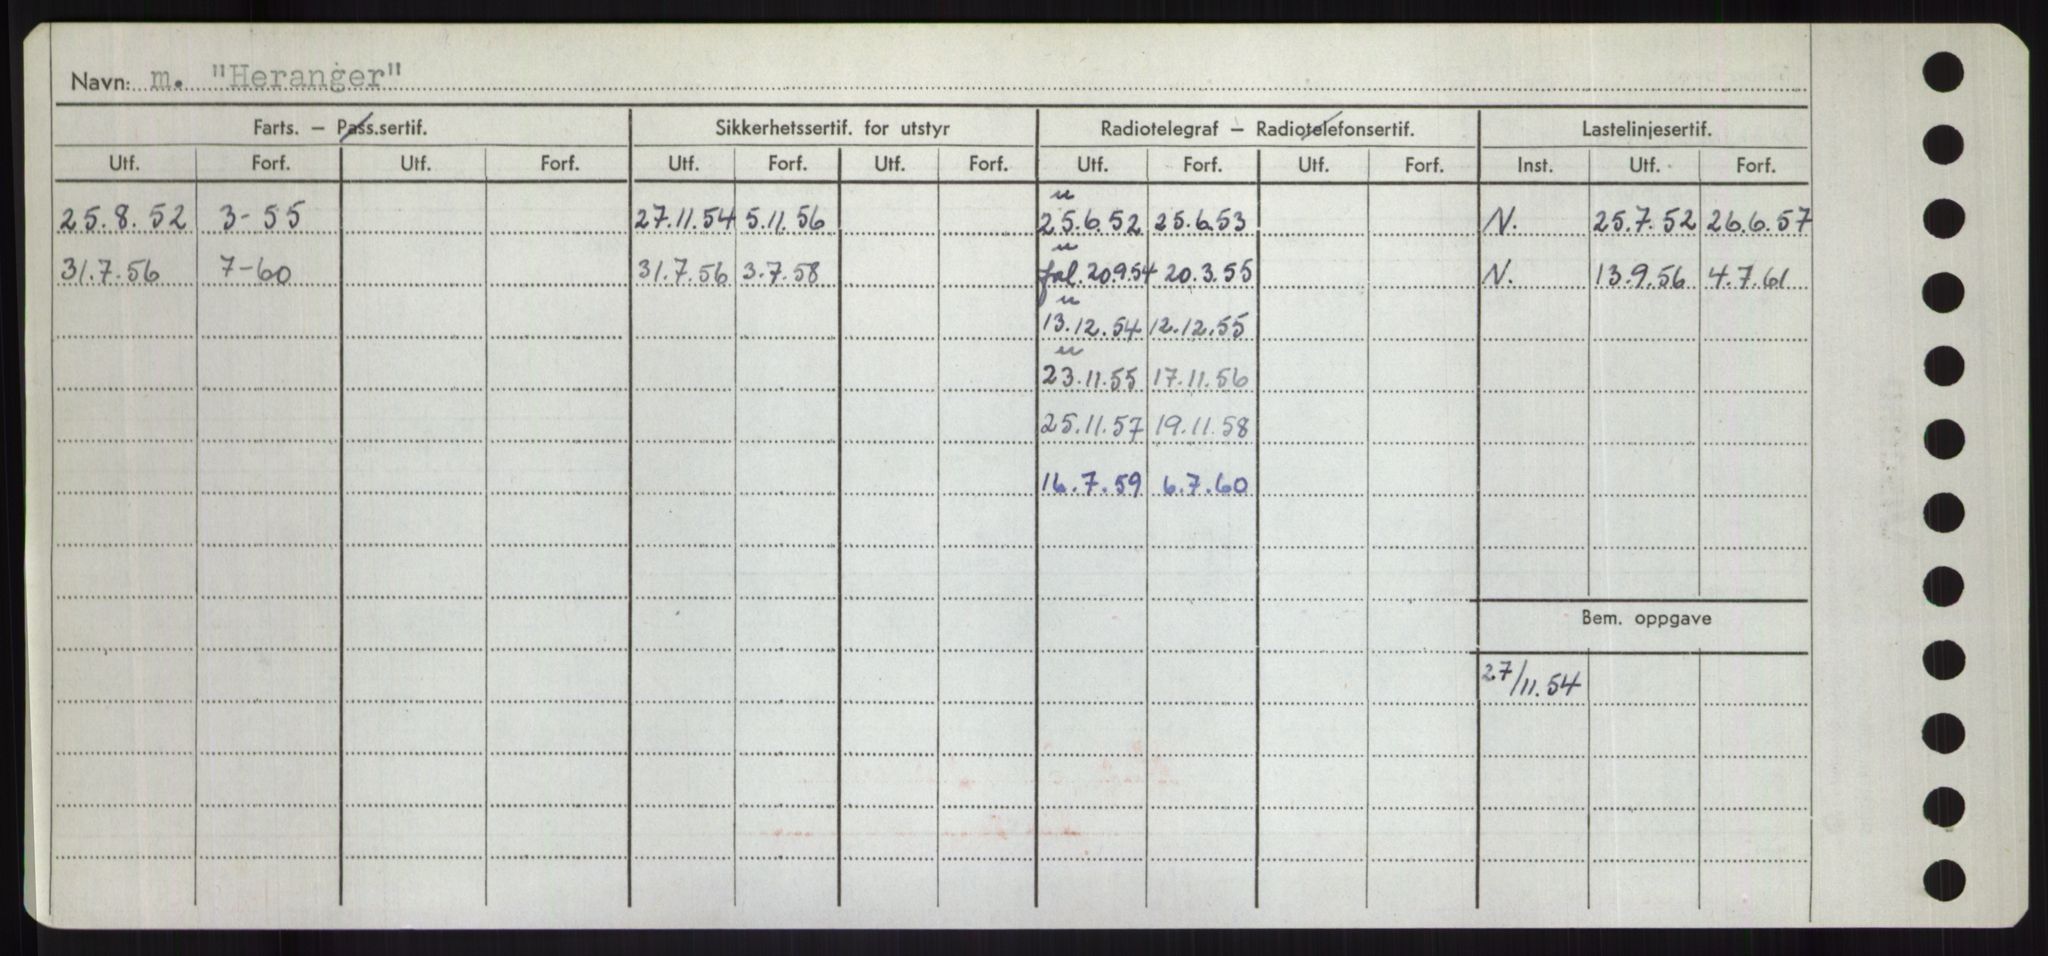 Navn: m. "Heranger"
Farts. – Pass.sertif. Sikkerhetssertif. for utstyr Radiotelegraf – Radiotelefonsertif. Lastelinjesertif.
Utf. Forf. Utf. Forf. Utf. Forf. Utf. Forf. Utf. Forf. Utf. Forf. Inst. Utf. Forf.
u
25.8.52 3-55 27.11.54 5.11.56 25.6.52 25.6.53 N. 25.7.52 26.6.57
u
31.7.56 7-60 31.7.56 3.7.58 20.9.54 20.3.55 N. 13.9.56 4.7.61
u
13.12.54 12.12.55
u
23.11.55 17.11.56
25.11.57 19.11.58
16.7.59 6.7.60
Bem. oppgave
27/11.54